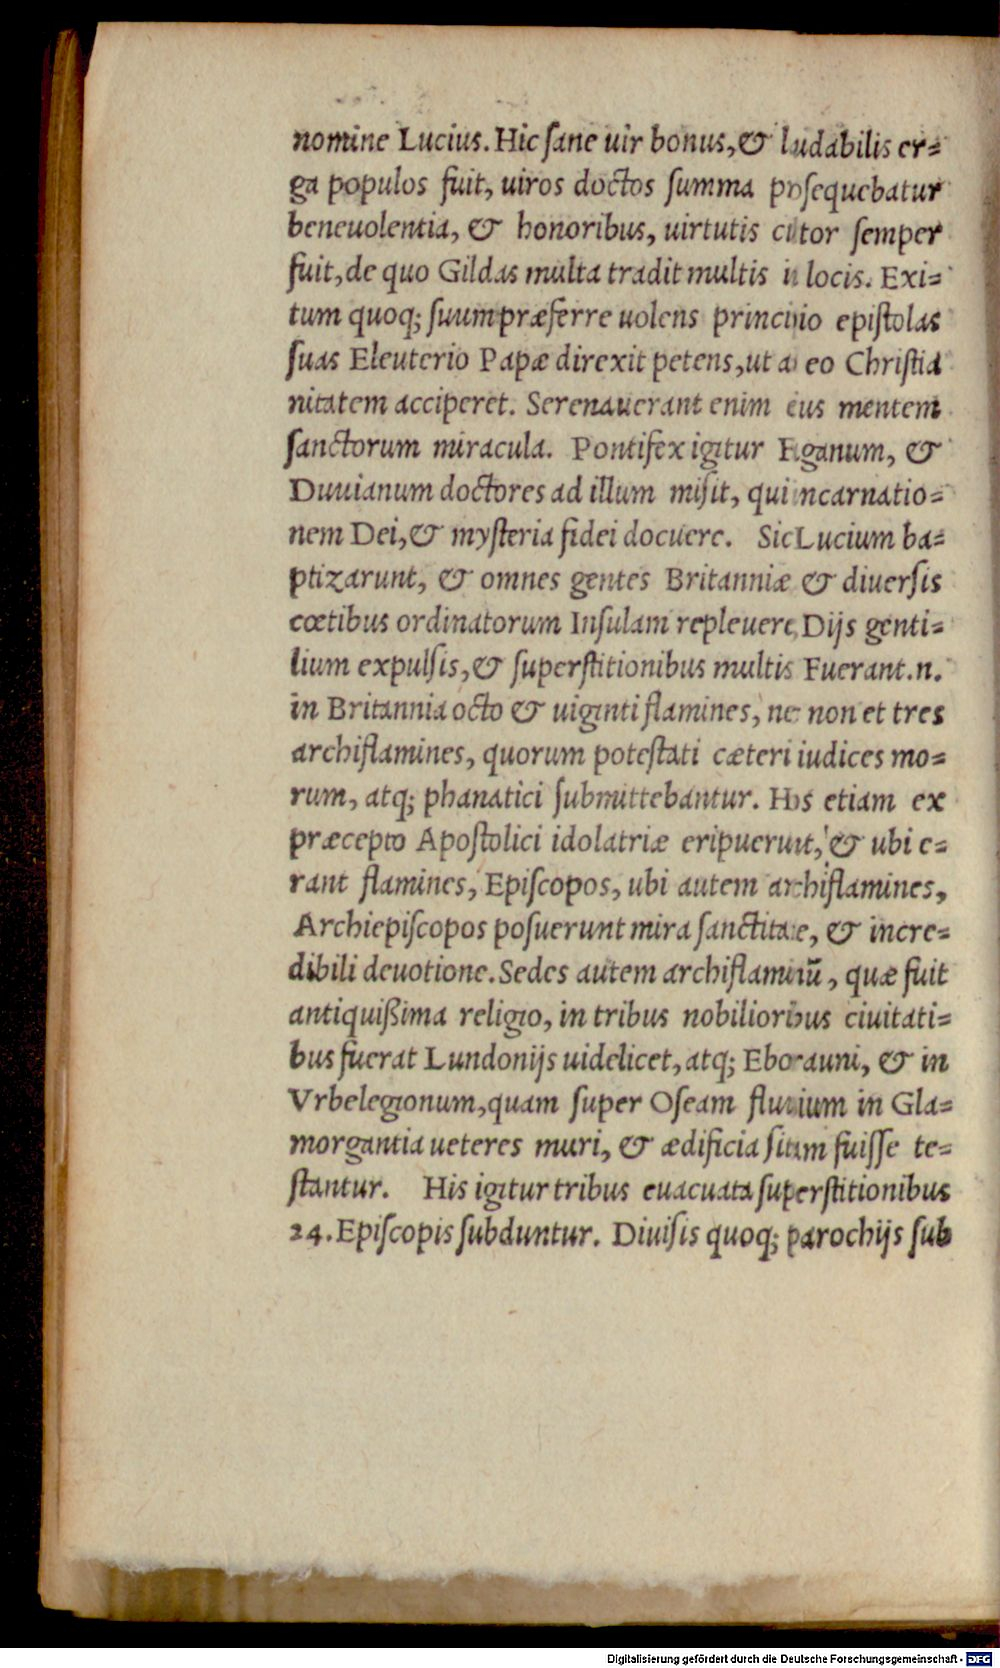 nomine Lucius. Hic sane uir bonus, & laudabilis er-
ga populos fuit, uiros doctos summa prosequebatur
beneuolentia, & honoribus, uirtutis cultor semper
fuit, de quo Gildas multa tradit multis in locis. Exi-
tum quoq; suum præferre uolens principio epistolas
suas Eleuterio Papæ direxit petens, ut ab eo Christia
nitatem acciperet. Serenauerant enim eius mentem
sanctorum miracula. Pontifex igitur Faganum, &
Duuianum doctores ad illum misit, qui incarnatio-
nem Dei, & mysteria fidei docuere. Sic Lucium ba-
ptizarunt, & omnes gentes Britanniæ & diuersis
cœtibus ordinatorum Insulam repleuere, Dijs genti-
lium expulsis, & superstitionibus multis Fuerant.n.
in Britannia octo & uiginti flamines, nec non et tres
archiflamines, quorum potestati cæteri iudices mo-
rum, atq; phanatici submittebantur. Hos etiam ex
præcepto Apostolici idolatriæ eripuerunt, & ubi e-
rant flamines, Episcopos, ubi autem archiflamines,
Archiepiscopos posuerunt mira sanctitate, & incre-
dibili deuotione. Sedes autem archiflaminū, quæ fuit
antiquißima religio, in tribus nobilioribus ciuitati-
bus fuerat Lundonijs uidelicet, atq; Eborauni, & in
Vrbelegionum, quam super Oseam fluuium in Gla-
morgantia ueteres muri, & ædificia sitam fuisse te-
stantur. His igitur tribus euacuata superstitionibus
24. Episcopis subduntur. Diuisis quoq; parochijs sub
Digitalisierung gefördert durch die Deutsche Forschungsgemeinschaft - DFG